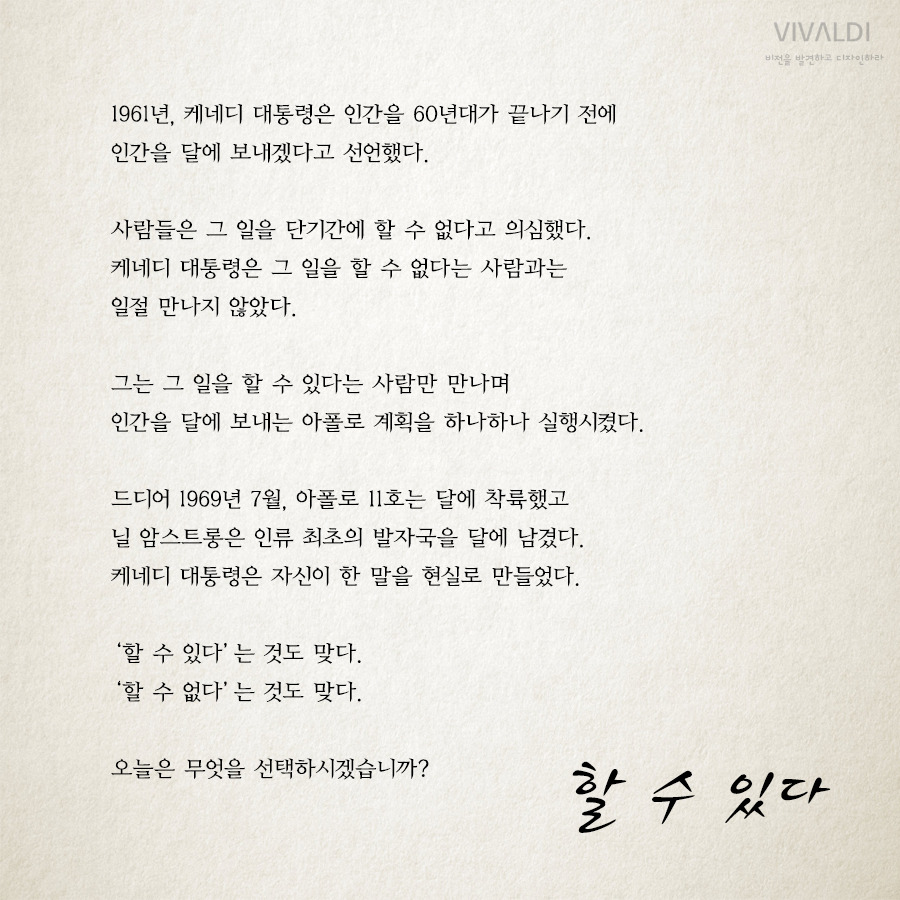 VIVALDI
비전을 발견하고 디자인하라
1961년, 케네디 대통령은 인간을 60년대가 끝나기 전에
인간을 달에 보내겠다고 선언했다.
사람들은 그 일을 단기간에 할 수 없다고 의심했다.
케네디 대통령은 그 일을 할 수 없다는 사람과는
일절 만나지 않았다.
그는 그 일을 할 수 있다는 사람만 만나며
인간을 달에 보내는 아폴로 계획을 하나하나 실행시켰다.
드디어 1969년 7월, 아폴로 11호는 달에 착륙했고
닐 암스트롱은 인류 최초의 발자국을 달에 남겼다.
케네디 대통령은 자신이 한 말을 현실로 만들었다.
‘할 수 있다’는 것도 맞다.
‘할 수 없다’는 것도 맞다.
오늘은 무엇을 선택하시겠습니까?
할 수 있다